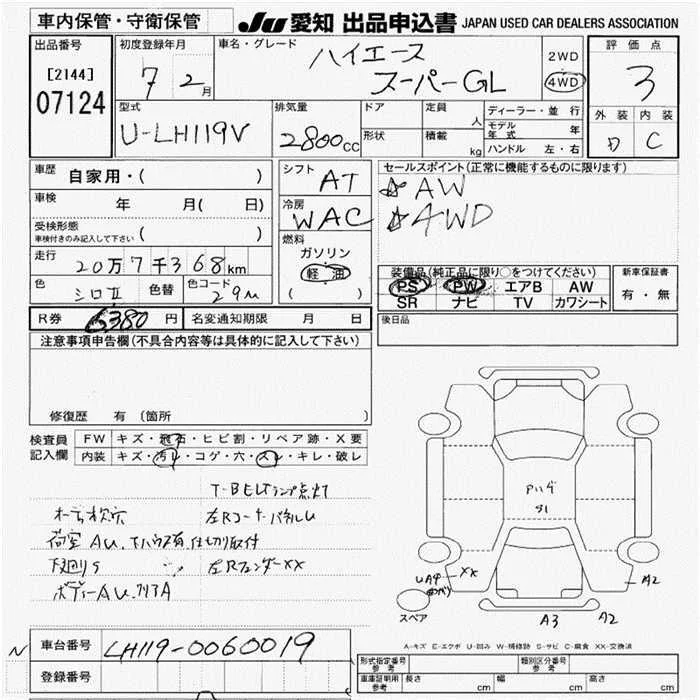 車内保管・守衛保管
JU 愛知 出品申込書 JAPAN USED CAR DEALERS ASSOCIATION
出品番号
[2144]
07124
初度登録年月
7 2月
車名・グレード
ハイエース
スーパーGL
2WD
4WD
評価点
3
外装 内装
D C
型式
U-LH119V
排気量
2800cc
ドア
形状
定員 人
積載 kg
ディーラー・並行
モデル年式 年
ハンドル 左・右
車歴 自家用・( )
車検 年 月( 日)
受検形態
車検付きのみ記入して下さい ( )
走行 20万7千368km
色 シロII 色替 色コード 29u
シフト AT
冷房 WAC
燃料
ガソリン
軽油
( )
セールスポイント(正常に機能するものに限ります)
☆AW
☆4WD
装備品(純正品に限り○をつけてください)
PS PW エアB AW
SR ナビ TV カワシート
新車保証書
有・無
R券 6380円 名変通知期限 月 日
後日品
注意事項申告欄(不具合内容等は具体的に記入して下さい)
修復歴 有(箇所
検査員記入欄
FW キズ・飛石・ヒビ割・リペア跡・X要
内装 キズ・汚レ・コゲ・穴・スレ・キレ・破レ
T-BELTランプ点灯
左Rコーナーパネルu
荷室AU. 仕切取付
下廻りS
左RフェンダーXX
ボディーAU.
S1
XX
UA4
A2
A3 A2
スペア
A-キズ E-エクボ U-凹み W-補修跡 S-サビ C-腐食 XX-交換済
N
車台番号 LH119-0060019
登録番号
形式指定番号 参考
類別区分番号 参考
車庫証明用 参考 長さ cm 幅 cm 高さ cm